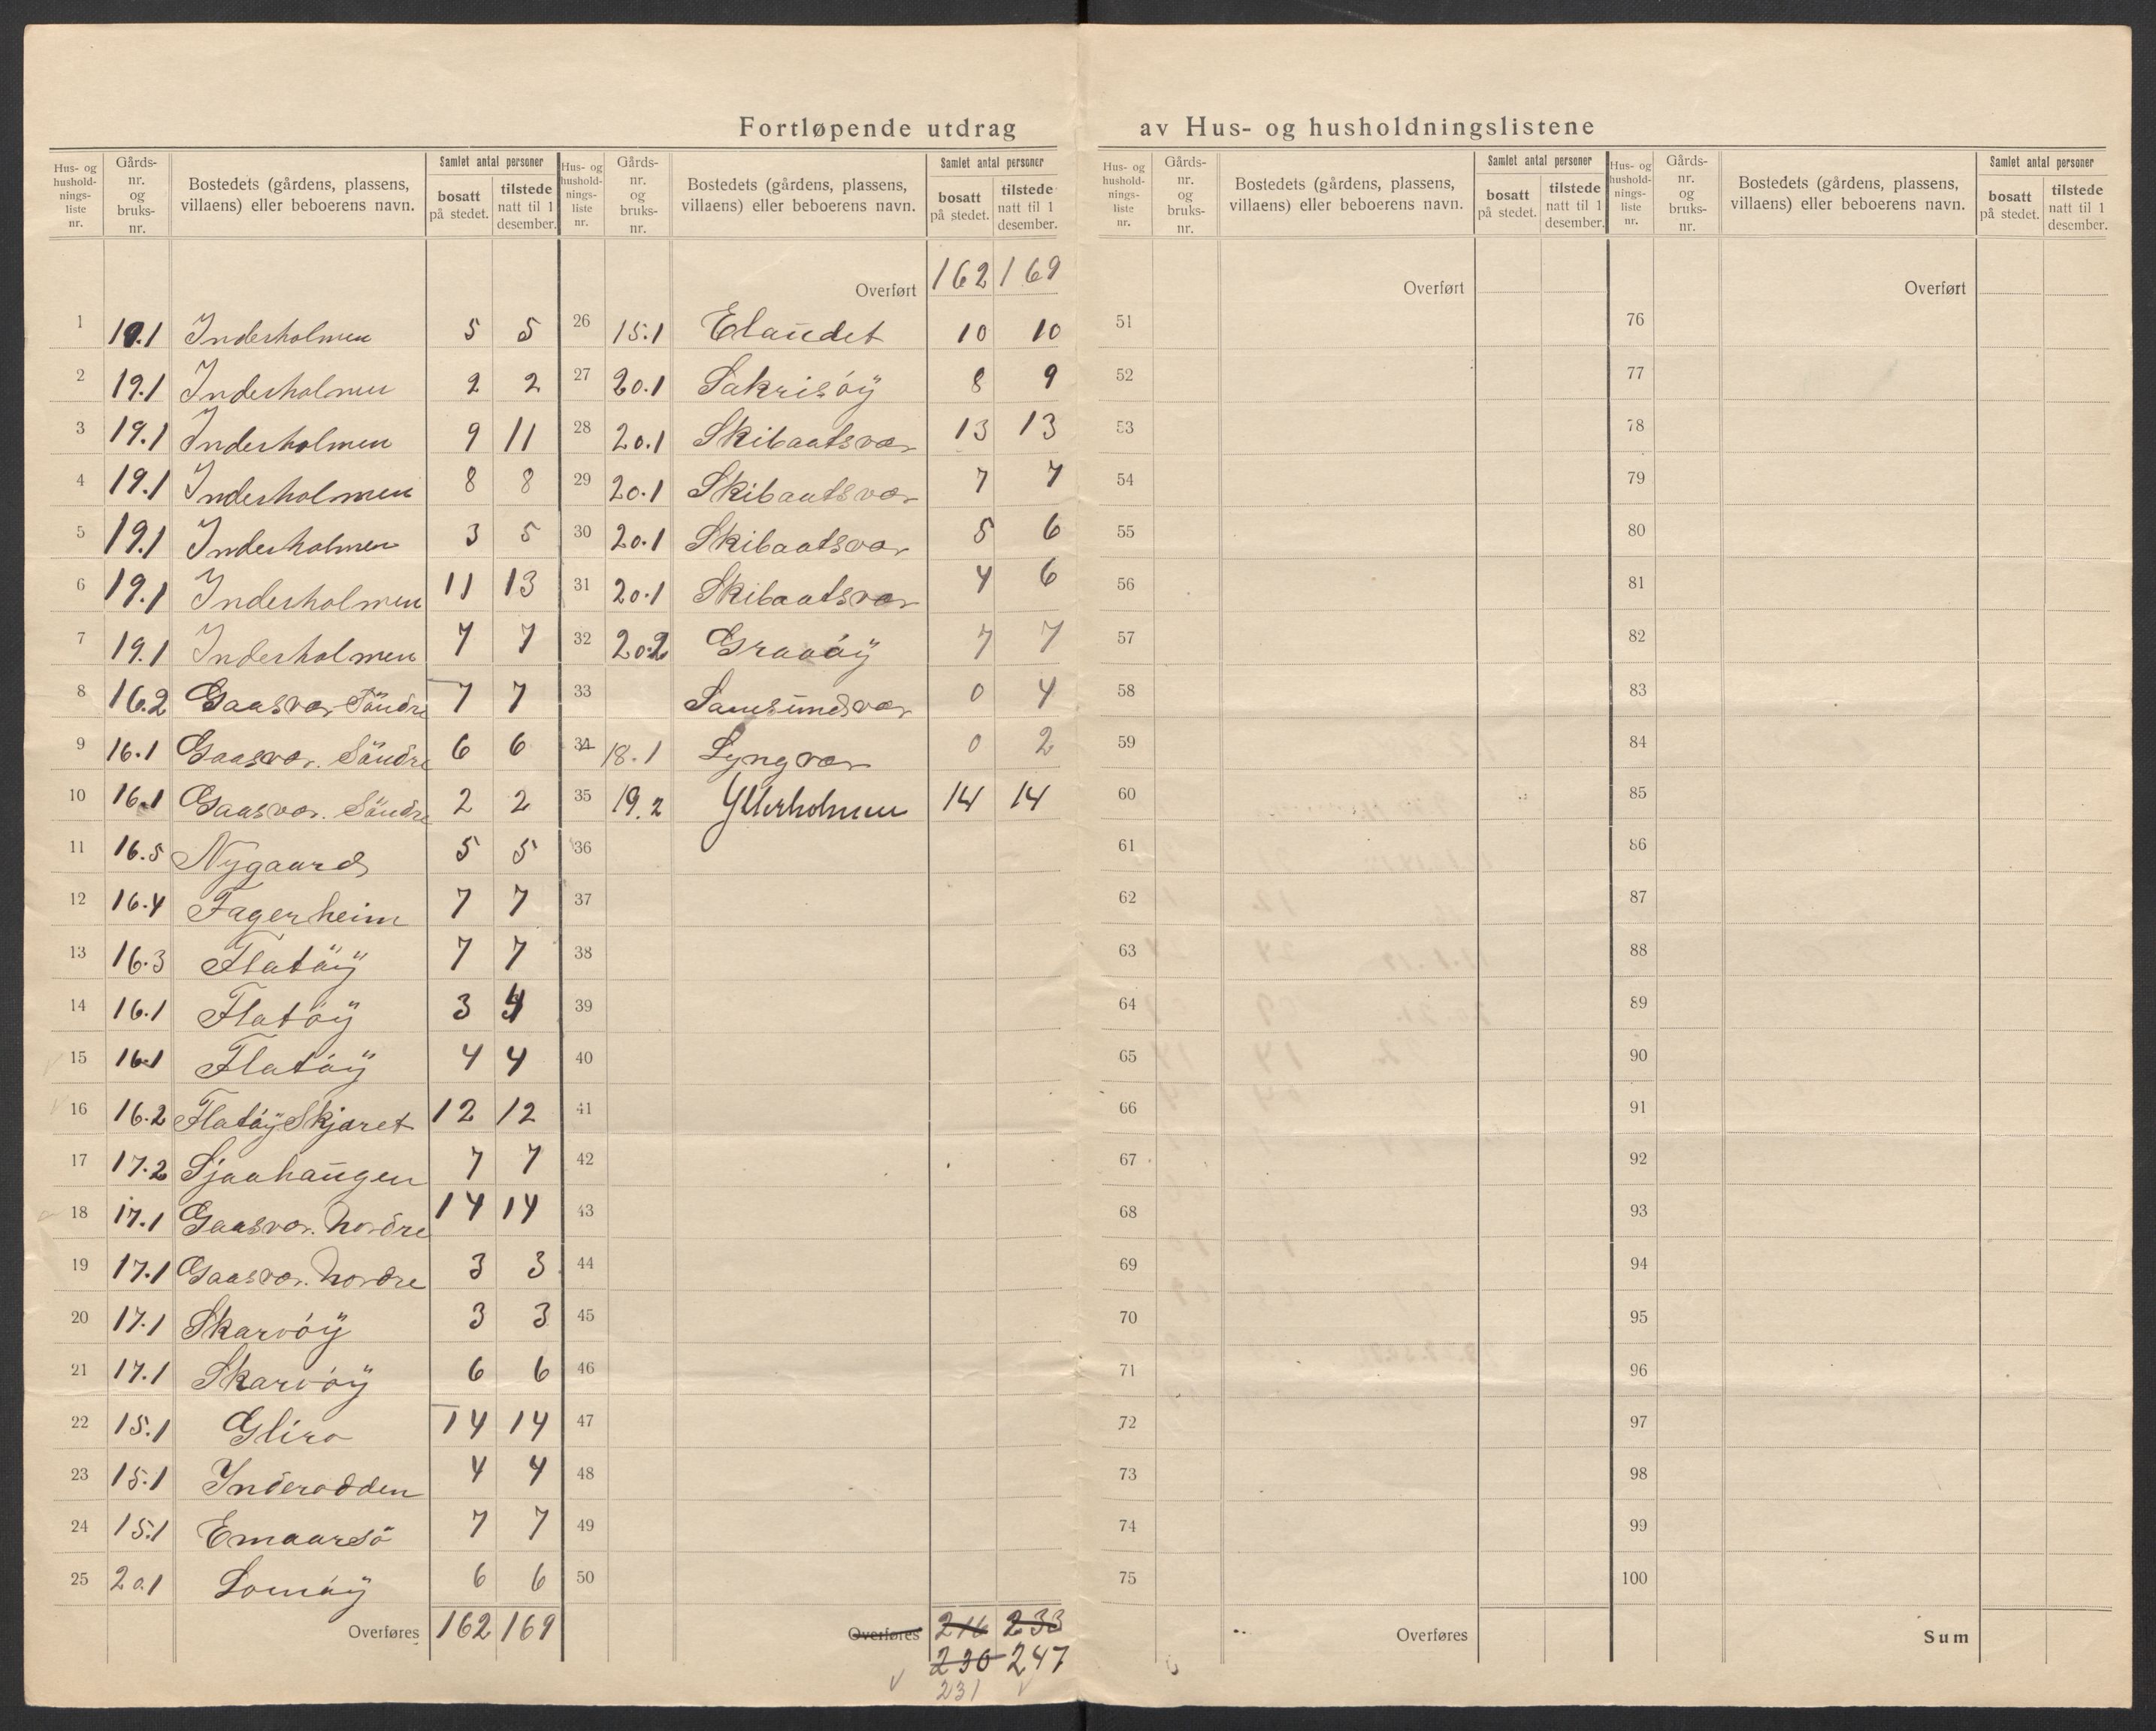 Fortløpende utdrag av Hus- og husholdningslistene
Hus- og hushold-nings-liste nr. Gårds-nr. og bruks-nr. Bostedets (gårdens, plassens, villaens) eller beboerens navn. Samlet antal personer bosatt på stedet. tilstede natt til 1 desember.
1 19.1 Inderholmen 5 5
2 19.1 Inderholmen 2 2
3 19.1 Inderholmen 9 11
4 19.1 Inderholmen 8 8
5 19.1 Inderholmen 3 5
6 19.1 Inderholmen 11 13
7 19.1 Inderholmen 7 7
8 16.2 Gaasvær Söndre 7 7
9 16.1 Gaasvær. Söndre 6 6
10 16.1 Gaasvær. Söndre 2 2
11 16.5 Nygaard 5 5
12 16.4 Fagerheim 7 7
13 16.3 Flatöÿ 7 7
14 16.1 Flatöÿ 3 4
15 16.1 Flatöÿ 4 4
16 16.2 FlatöÿSkjæret 12 12
17 17.2 Sjaahaugen 7 7
18 17.1 Gaasvær. Nordre 14 14
19 17.1 Gaasvær. Nordre 3 3
20 17.1 Skarvöÿ 3 3
21 17.1 Skarvöÿ 6 6
22 15.1 Glira 14 14
23 15.1 Inderodden 4 4
24 15.1 Emaarsö 7 7
25 20.1 Lomöÿ 6 6
Overføres 162 169
Hus- og hushold-nings-liste nr. Gårds-nr. og bruks-nr. Bostedets (gårdens, plassens, villaens) eller beboerens navn. Samlet antal personer bosatt på stedet. tilstede natt til 1 desember.
Overført 162 169
26 15.1 Elaüdet 10 10
27 20.1 Sakrisöÿ 8 9
28 20.1 Skibaatsvær 13 13
29 20.1 Skibaatsvær 7 7
30 20.1 Skibaatsvær 5 6
31 20.1 Skibaatsvær 4 6
32 20.2 Graaöÿ 7 7
33 0 4
34 18.1 Lyngvær 0 2
35 19.2 Ytterholmen 14 14
36
37
38
39
40
41
42
43
44
45
46
47
48
49
50
Overføres 216 233
230 247
231
Hus- og hushold-nings-liste nr. Gårds-nr. og bruks-nr. Bostedets (gårdens, plassens, villaens) eller beboerens navn. Samlet antal personer bosatt på stedet. tilstede natt til 1 desember.
Overført
51
52
53
54
55
56
57
58
59
60
61
62
63
64
65
66
67
68
69
70
71
72
73
74
75
Overføres
Hus- og hushold-nings-liste nr. Gårds-nr. og bruks-nr. Bostedets (gårdens, plassens, villaens) eller beboerens navn. Samlet antal personer bosatt på stedet. tilstede natt til 1 desember.
Overført
76
77
78
79
80
81
82
83
84
85
86
87
88
89
90
91
92
93
94
95
96
97
98
99
100
Sum